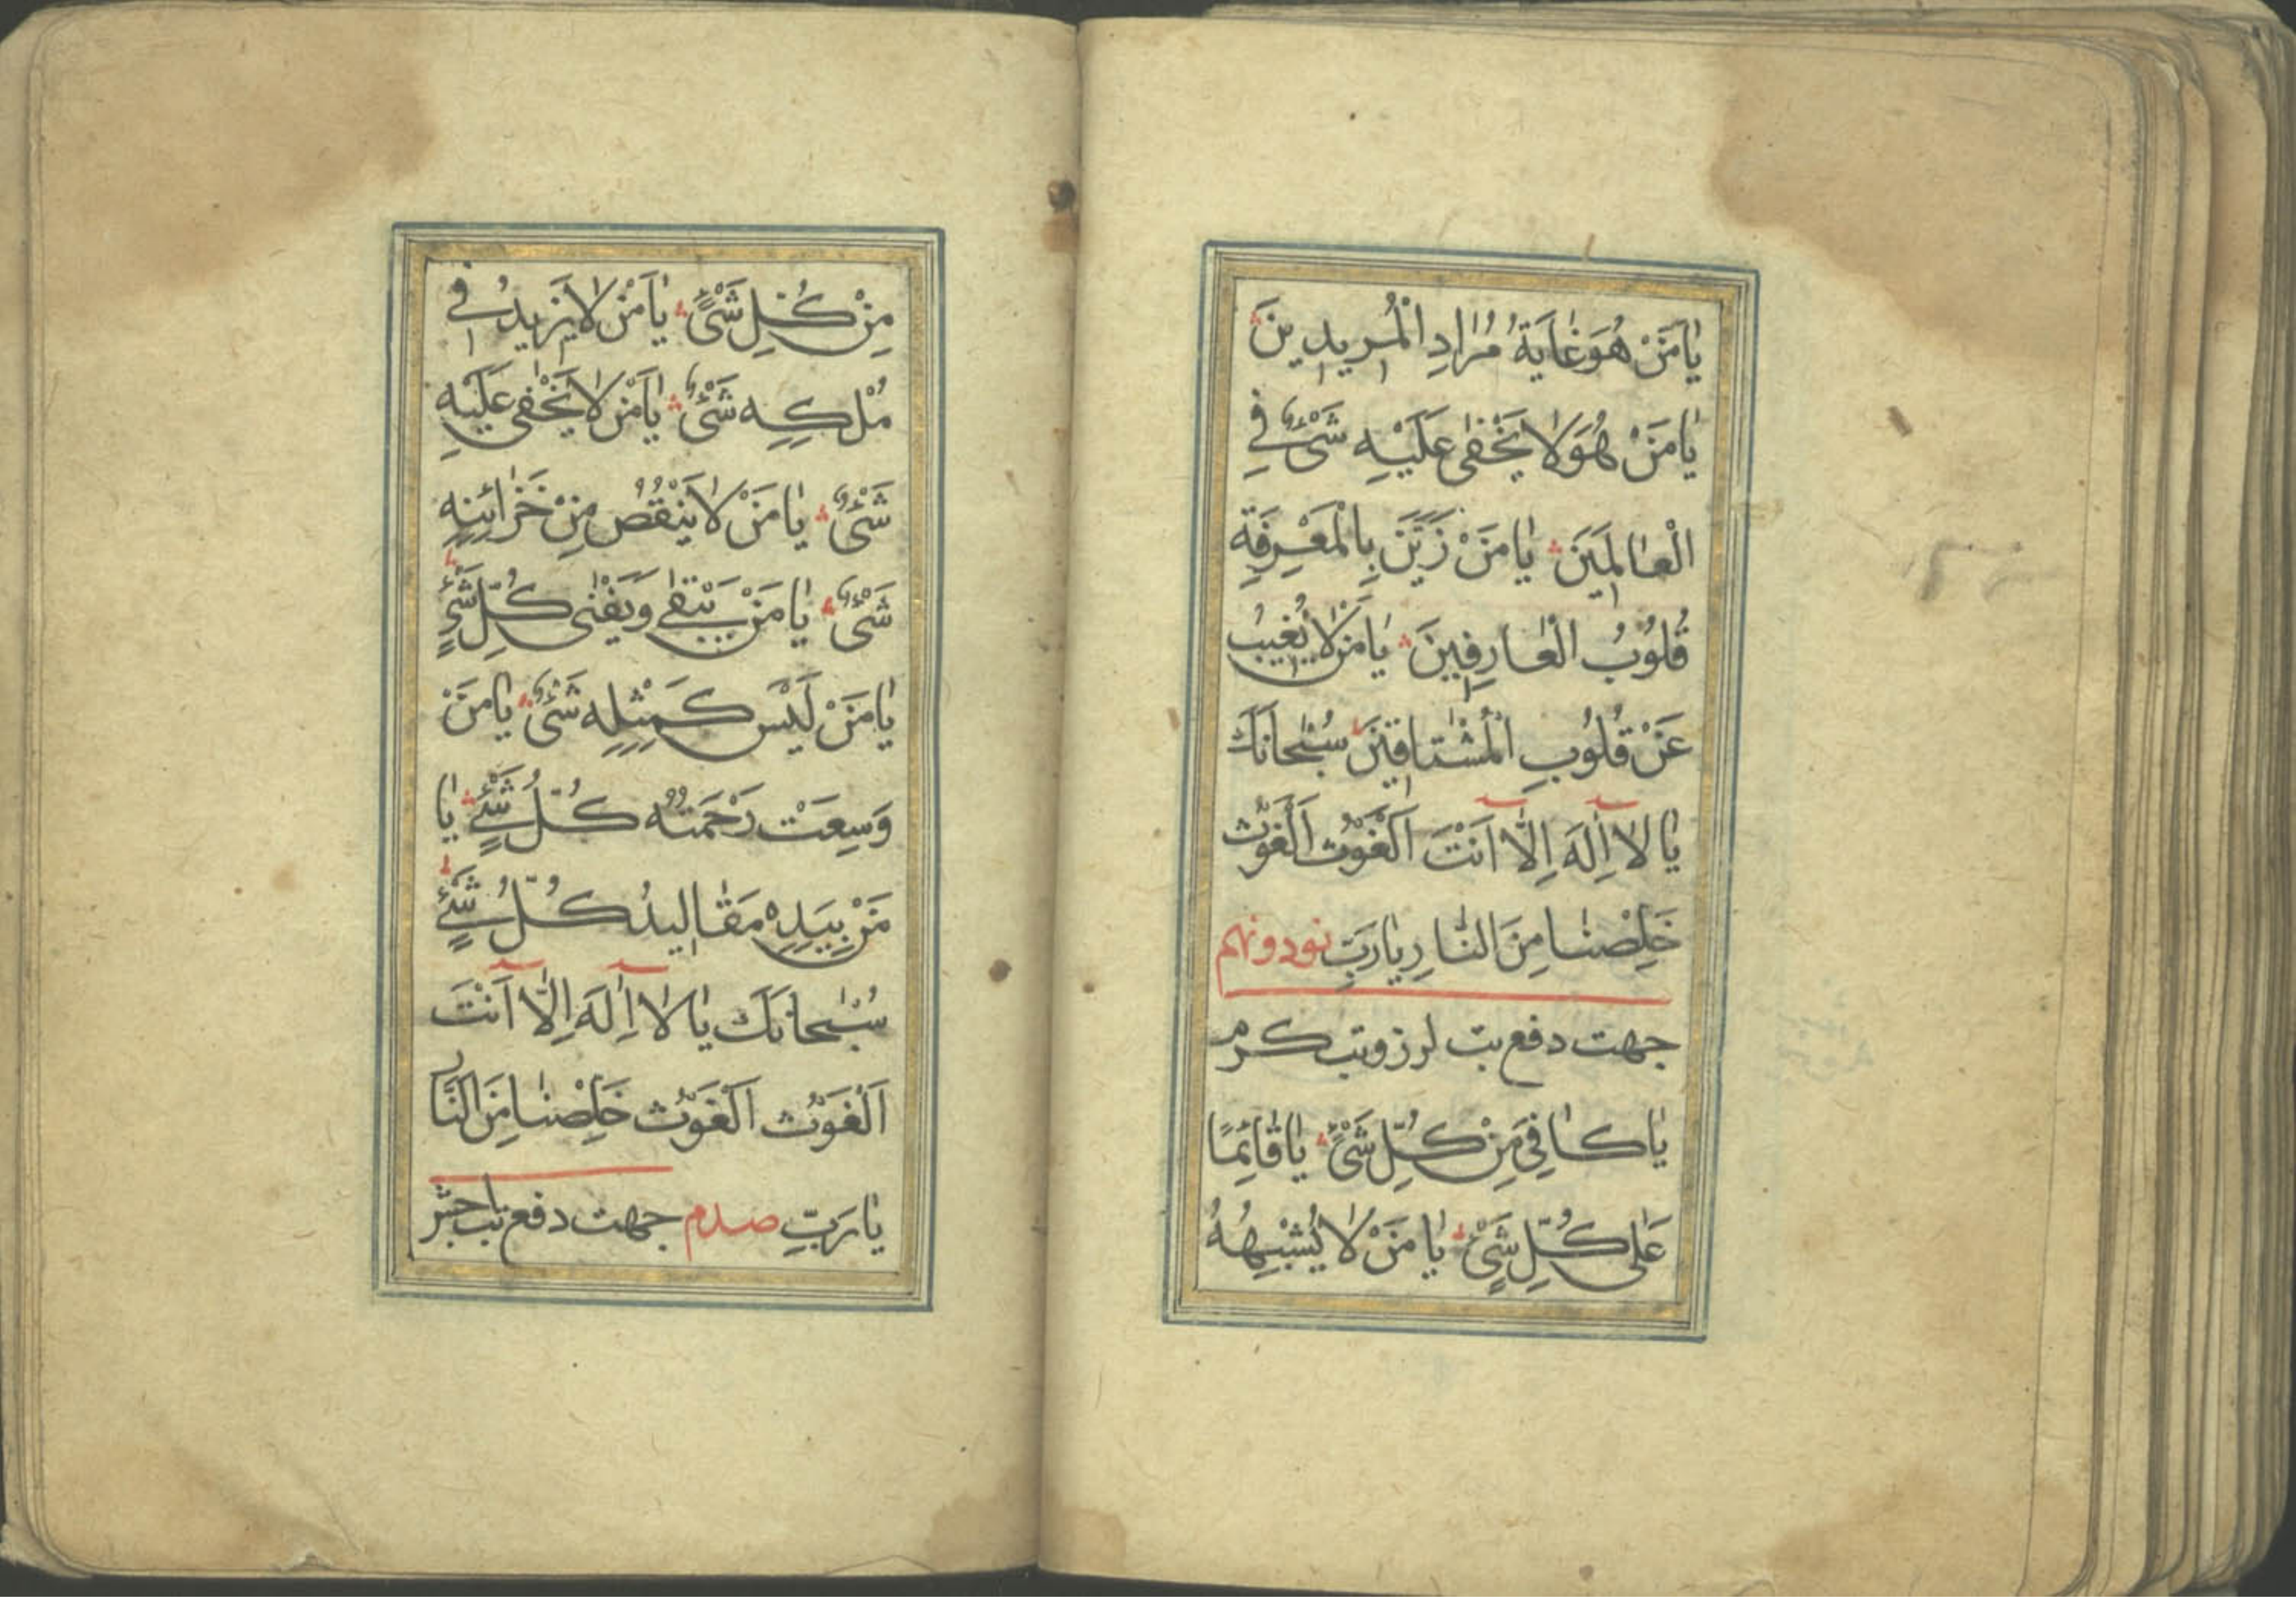 يَا مَنْ هُوَ غَايَةُ مُرَادِ الْمُرِيدِينَ
يَا مَنْ هُوَ لَا يَخْفٰى عَلَيْهِ شَىْءٌ فِى
الْعَالَمِينَ يَا مَنْ زَيَّنَ بِالْمَعْرِفَةِ
قُلُوبُ الْعَارِفِينَ يَا مَنْ لَا يُغِيبُ
عَنْ قُلُوبِ الْمُشْتَاقِينَ سُبْحَانَكَ
يَا لَا اِلَهَ اِلَّا اَنْتَ اَلْغَوْثَ اَلْغَوْثَ
خَلِّصْنَا مِنَ النَّارِ يَا رَبِّ نود و نهم
جهت دفع تب لرز و تب گرم
يَا كَافِى مِنْ كُلِّ شَىْءٍ يَا قَائِمًا
عَلٰى كُلِّ شَىْءٍ يَا مَنْ لَا يُشْبِهُهُ
مِنْ كُلِّ شَىْءٍ يَا مَنْ لَا يَزِيدُ فِى
مُلْكِهِ شَىْءٌ يَا مَنْ لَا يَخْفٰى عَلَيْهِ
شَىْءٌ يَا مَنْ لَا يَنْقُصُ مِنْ خَزَائِنِهِ
شَىْءٌ يَا مَنْ يَبْقٰى وَيَفْنٰى كُلِّ شَىْءٍ
يَا مَنْ لَيْسَ كَمِثْلِهِ شَىْءٌ يَا مَنْ
وَسِعَتْ رَحْمَتُهُ كُلَّ شَىْءٍ يَا
مَنْ بِيَدِهِ مَقَالِيدُ كُلُّ شَىْءٍ
سُبْحَانَكَ يَا لَا اِلَهَ اِلَّا اَنْتَ
اَلْغَوْثَ اَلْغَوْثَ خَلِّصْنَا مِنَ النَّار
يَا رَبِّ صدم جهت دفع تب